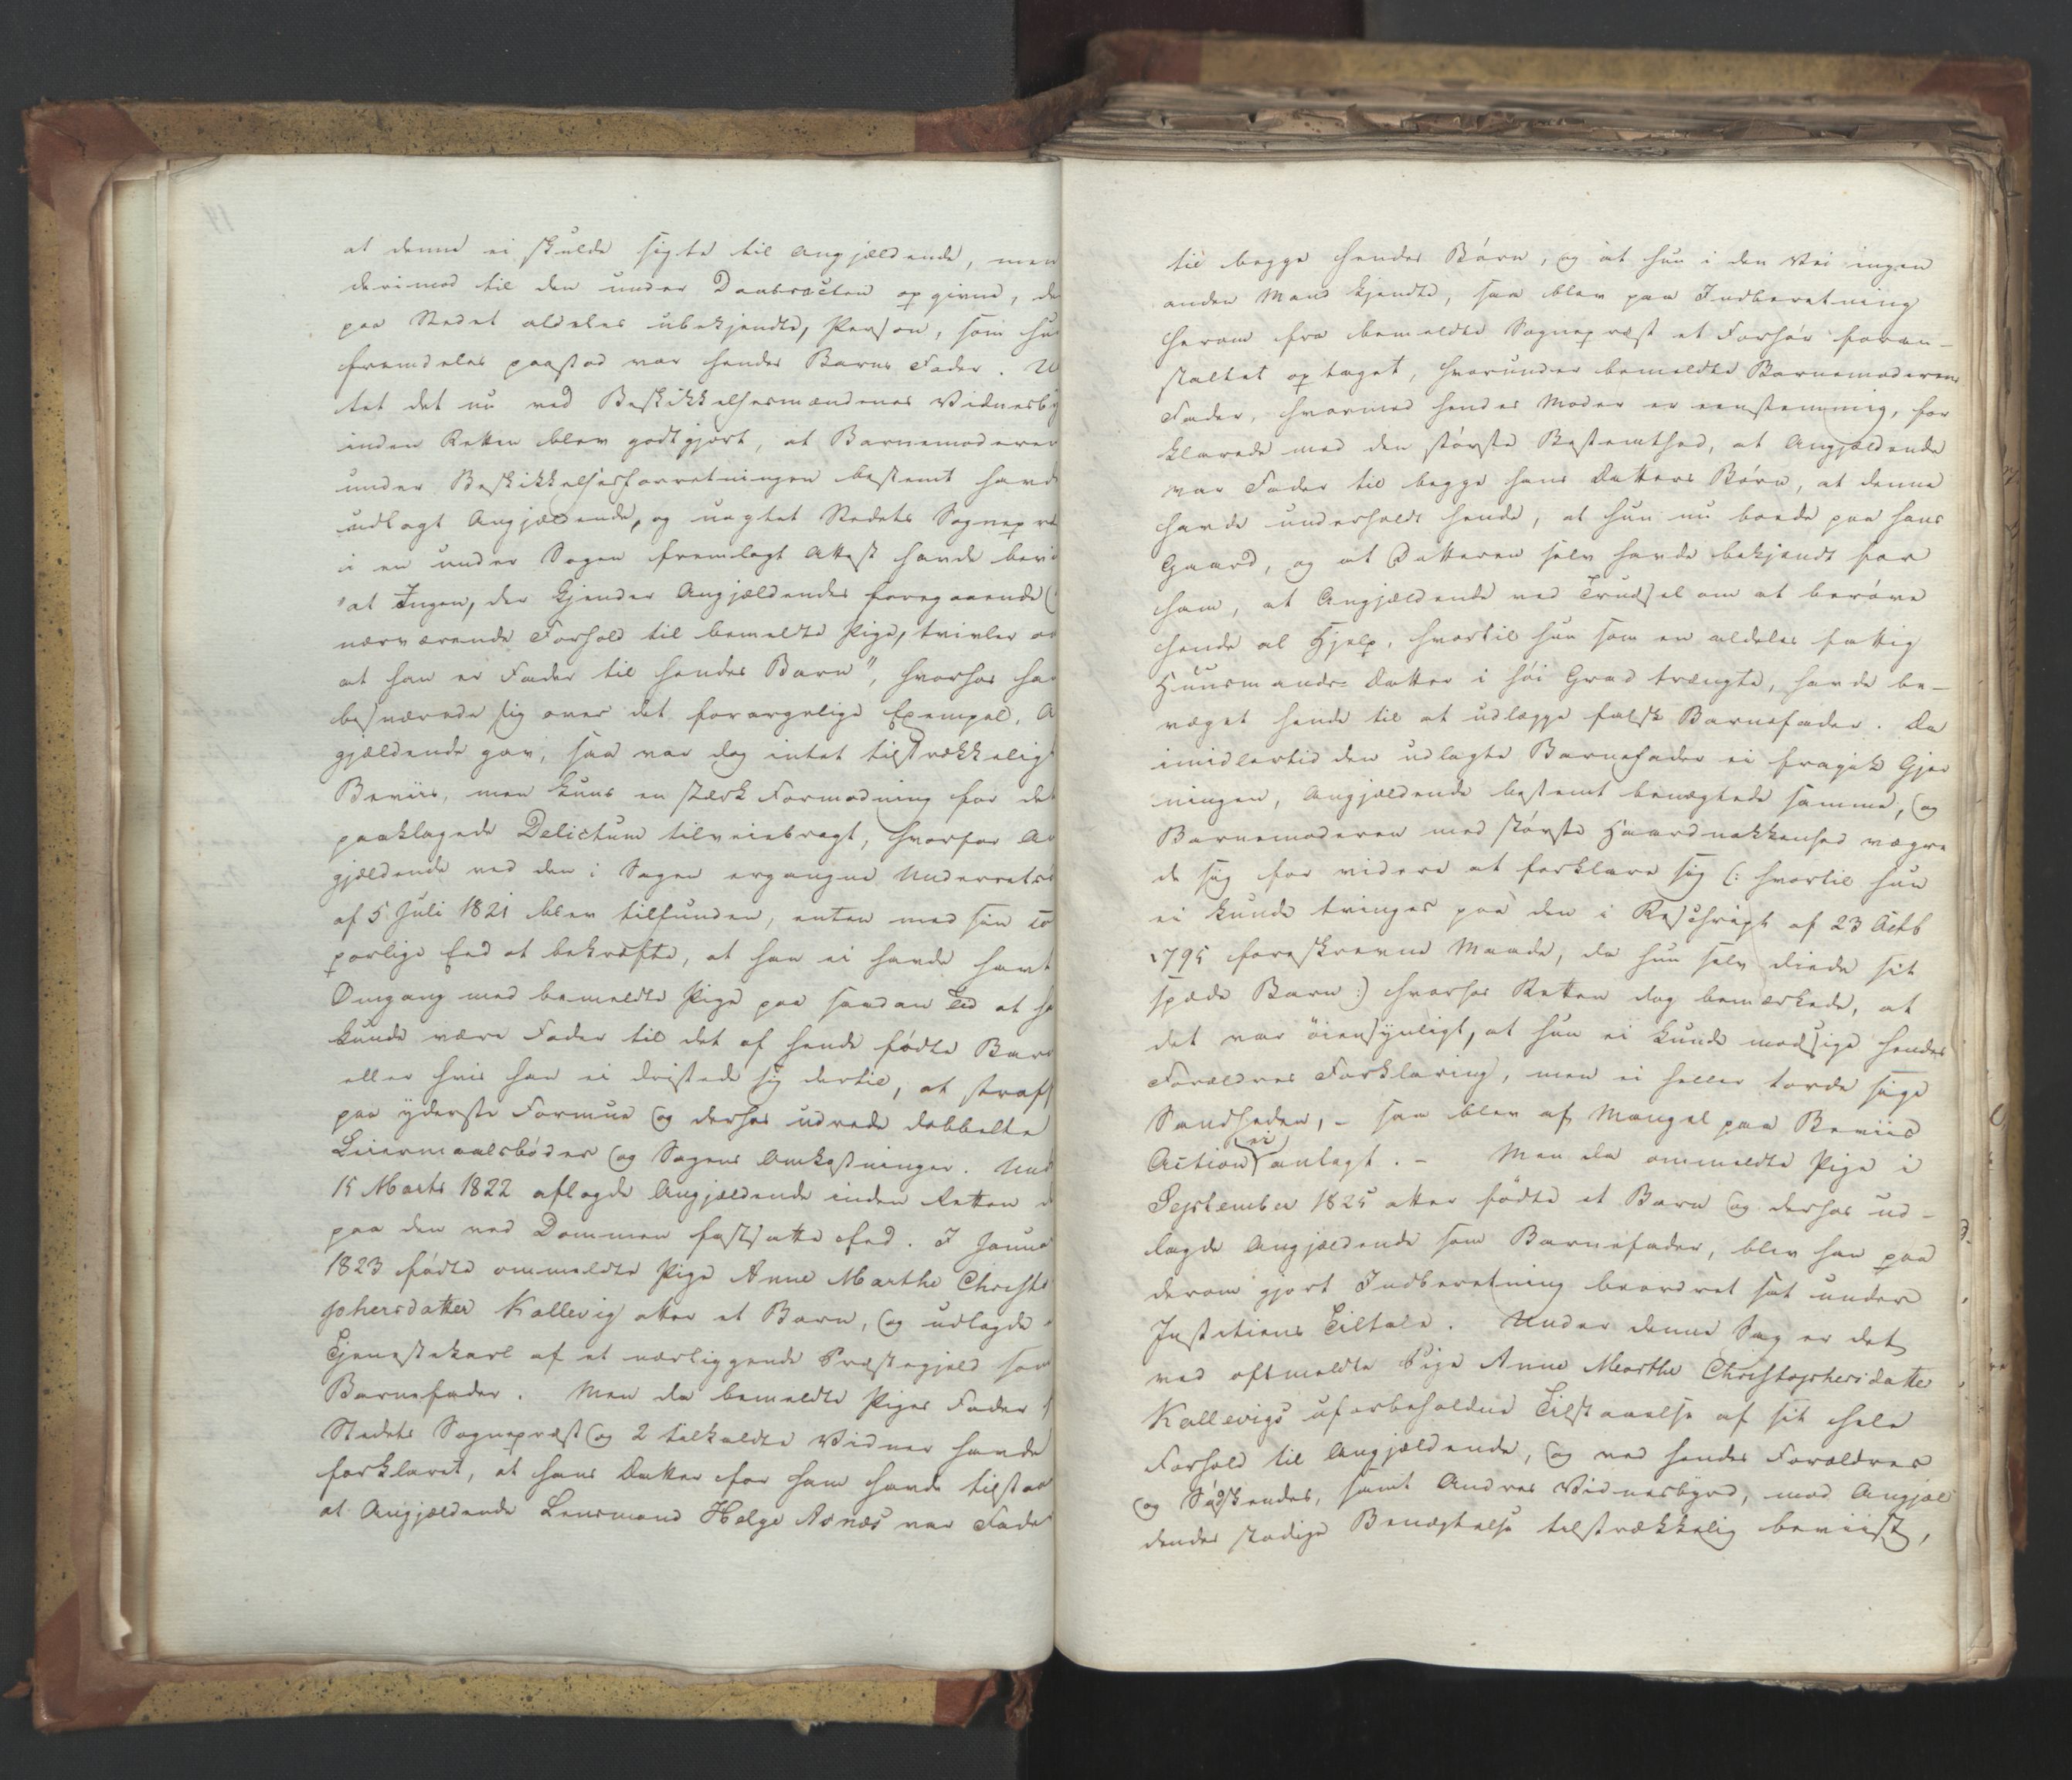 at denne ei skulde sigte til Angjældende, men
derimod til den under Daabsacten opgivne, de
paa Stedet aldeles ubekjendte, Person, som hu
fremdeles paastod var hendes Barns Fader. U
tet det nu ved Beskikkelsesmændenes Vidnesby
inden Retten blev godtgjort, at Barnemoderen
under Beskikkelsesforretningen bestemt havde
udlagt Angjældende, og uagtet Stedets Sognepræ
i en under Sagen fremlagt Attest havde bevi
"at Ingen, der kjender Angjældendes foregaaende (
nærværende Forhold til bemeldte Pige, tvivler
at han er Fader til hendes Barn", hvorhos han
besværede sig over det forargelige Exempel, A
gjældende gav, saa var dog intet tilstrækkeligt
Beviis, men kuns en stærk Formodning for det
paaklagede Delictum tilveiebragt, hvorfor An
gjældende ved den i Sagen ergangne Underrets
af 5 Juli 1821 blev tilfunden, enten med sin co
porlige Eed at bekræfte, at han ei havde havt
Omgang med bemeldte Pige paa saadan Tid at ha
kunde være Fader til det af hende fødte Barn
eller hvis han ei dristede sig dertil, at straff
paa yderste Formue og derhos udrede dobbelte
Leiermaalsbøder og Sagens Omkostninger. Und
15 Marts 1822 aflagde Angjældende inden Retten d
paa den ved Dommen fastsatte Eed. I Janua
1823 fødte ommeldte Pige Anne Marthe Christo
phersdatter Kallevig atter et Barn, og udlagde
Tjenestekarl af et nærliggende Præstegjæld som
Barnefader. Men da bemeldte Piges Fader f
Stedets Sognepræst og 2 tilkaldte Vidner havde
forklaret, at hans Datter for ham havde tilstaa
at Angjældende Lensmand Helge Asnæs var Fader
til begge hendes Børn, og at hun i den Vei ingen
anden Mand kjendte, saa blev paa Indberetning
herom fra bemeldte Sognepræst et Forhør foran-
staltet optaget, hvorunder bemeldte Barnemoderens
Fader, hvormed hendes Moder er eenstemmig, for
klarede med den største Bestemthed, at Angjældende
var Fader til begge hans Datters Børn, at denne
havde underholdt hende, at hun nu boede paa hans
Gaard, og at Datteren selv havde bekjendt for
ham, at Angjældende ved Trudsel om at berøve
hende al Hjelp, hvortil hun som en aldeles fattig
Huusmands Datter i høi Grad trængte, havde be-
væget hende til at udlægge falsk Barnefader. Da
imidlertid den udlagte Barnefader ei fragik Gjer
ningen, Angjældende bestemt benægtede samme, og
Barnemoderen med største Haardnakkenhed vægre
de sig for videre at forklare sig (: hvortil hun
ei kunde tvinges paa den i Reschript af 23 Octb
1795 foreskrevne Maade, da hun selv diede sit
spæde Barn :) hvorhos Retten dog bemærkede, at
det var øiensynligt, at hun ei kunde modsige hendes
Forældres Forklaring, men ei heller torde sige
Sandheden, - saa blev af Mangel paa Beviis
Action ei anlagt. - Men da ommeldte Pige i
September 1825 atter fødte et Barn og derhos ud-
lagde Angjældende som Barnefader, blev han paa
derom gjort Indberetning beordret sat under
Justitiens Tiltale. Under denne Sag er det
ved oftmeldte Pige Anne Marthe Christophersdatter
Kallevigs uforbeholdne Tilstaaelse af sit hele
Forhold til Angjældende, og ved hendes Forældres
og Sødskendes, samt Andres Vidnesbyrd, mod Angjæl
dendes stadige Benægtelse tilstrækkelig beviist,